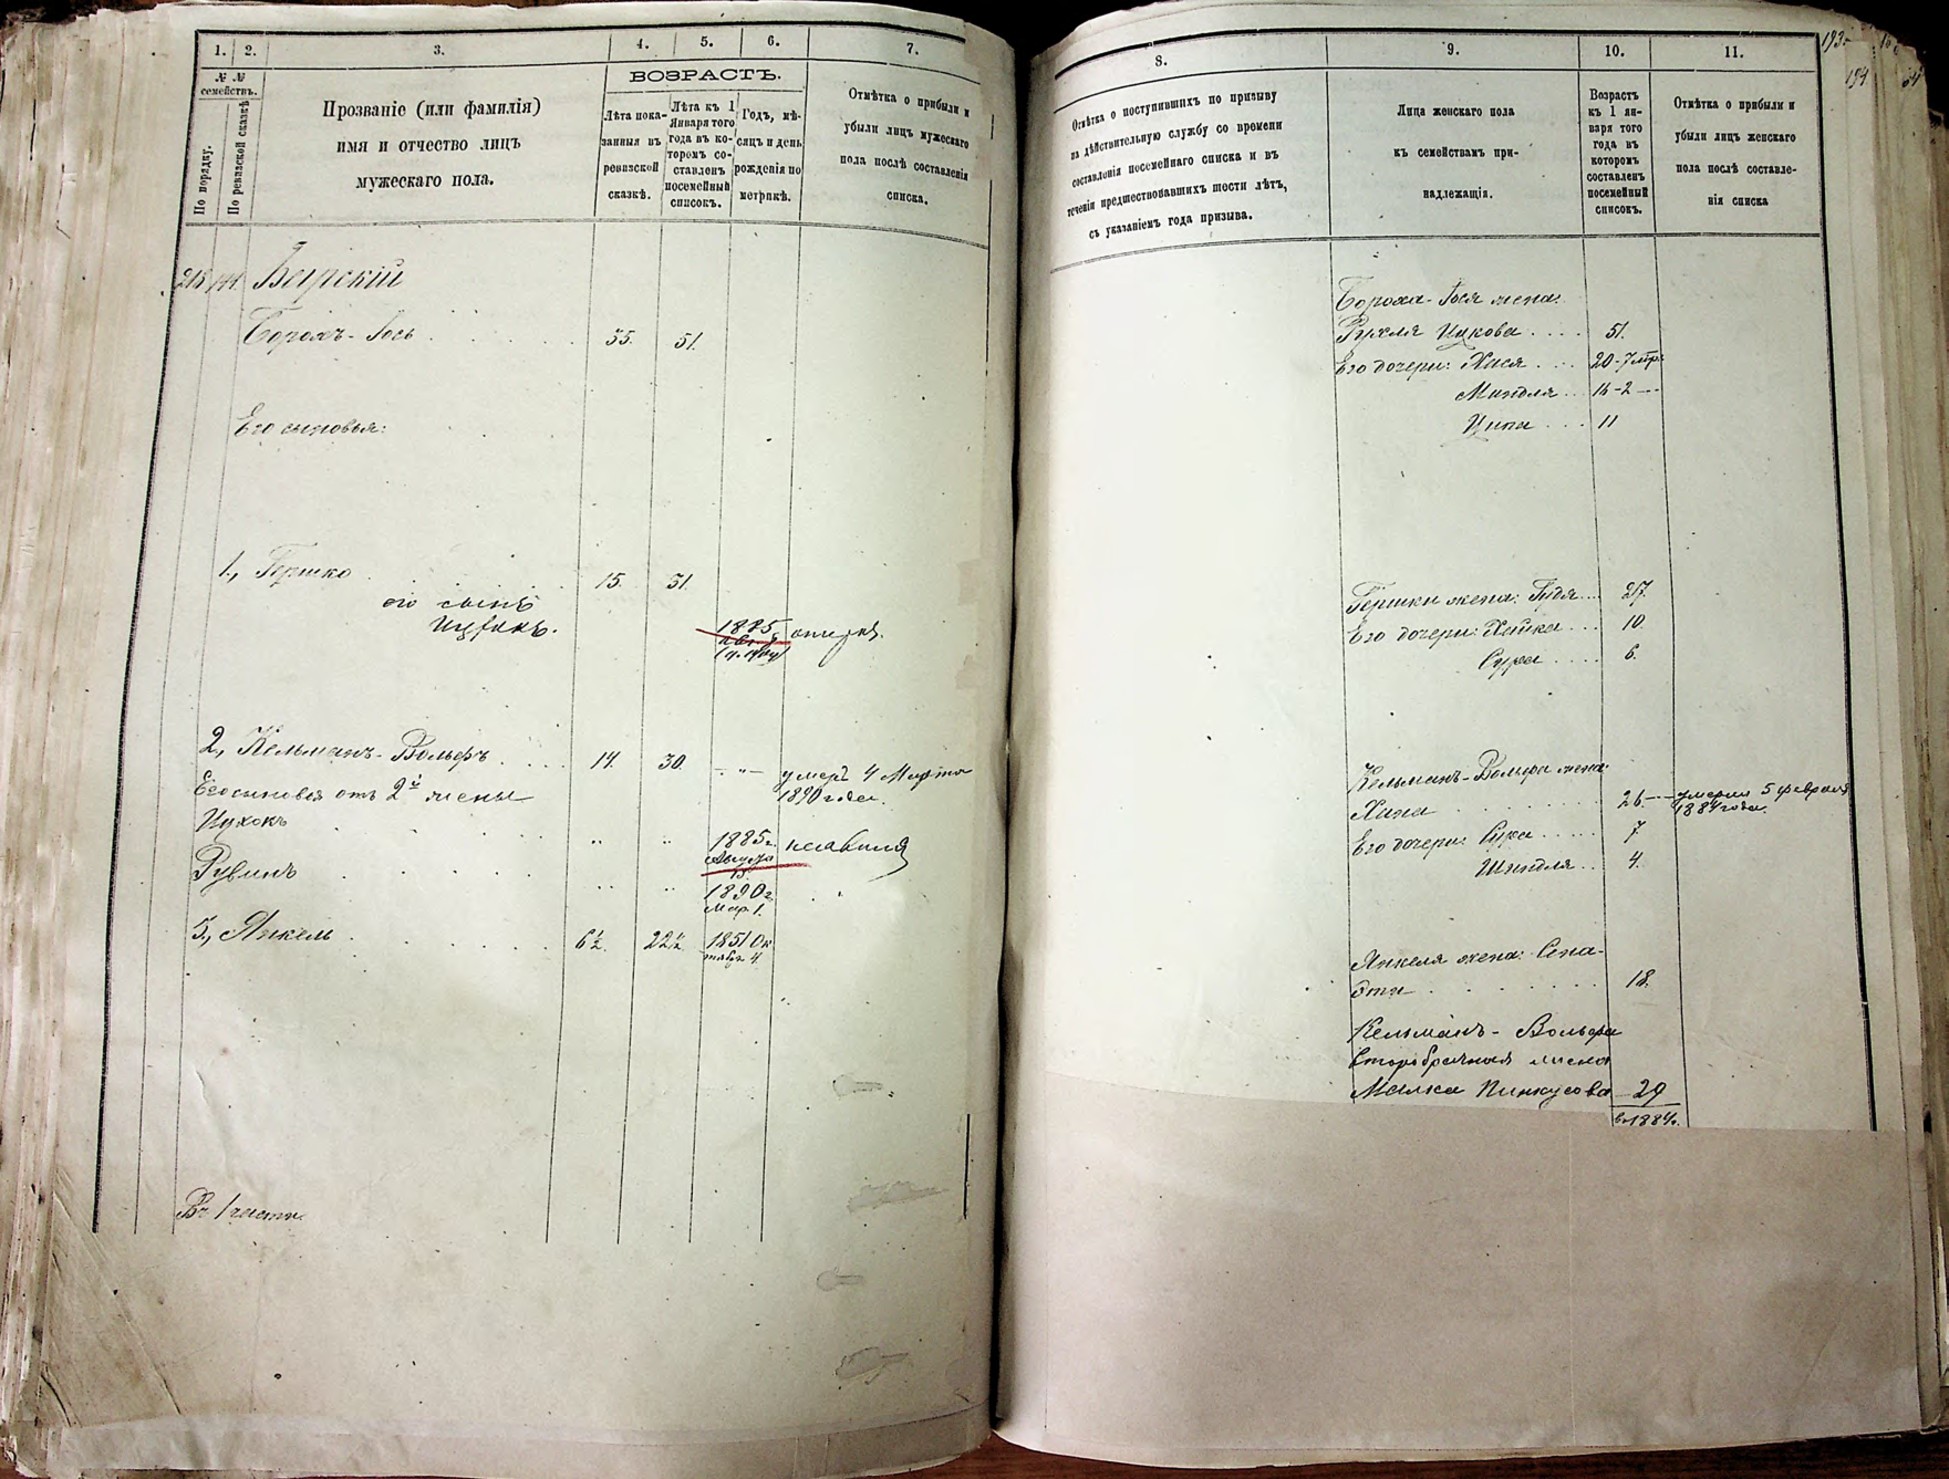 1. 2. 3. 4. 5. 6. 7.
№ № семействъ.
По порядку.
По ревизской сказкѣ
Прозваніе (или фамилія)
имя и отчество лицъ
мужескаго пола.
ВОЗРАСТЪ.
Лѣта пока-
занныя въ
ревизской
сказкѣ.
Лѣта къ 1
Января того
года въ ко-
торомъ со-
ставленъ
посемейный
списокъ.
Годъ, мѣ-
сяцъ и день
рожденія по
метрикѣ.
Отмѣтка о прибыли и
убыли лицъ мужескаго
пола послѣ составленія
списка.
Борохъ-Іось 35. 51.
Его сыновья:
1., Гершко 15. 31.
его сынъ
Ицхокъ. 1885
2., Кельманъ-Вольфъ 14. 30. умеръ 4 Марта
1890 года.
Его сыновья отъ 2й жены
Ицхокъ 1885г.
Августа
15.
Рувинъ 1890г.
Мар. 1.
3., Янкель 6½. 22½ 1851 Ок
тября 4.
Въ 1 части
8. 9. 10. 11.
193
194
Отмѣтка о поступившихъ по призыву
на дѣйствительную службу со времени
составленія посемейнаго списка и въ
теченіи предшествовавшихъ шести лѣтъ,
съ указаніемъ года призыва.
Лица женскаго пола
къ семействамъ при-
надлежащія.
Возрастъ
къ 1 ян-
варя того
года въ
котором
составленъ
посемейный
списокъ.
Отмѣтка о прибыли и
убыли лицъ женскаго
пола послѣ составле-
нія списка
Бороха-Іося жена:
Рухля Ицкова 51.
Его дочери: Хася 20-7
Миндля 16-2
Ципа 11
Гершки жена: Гудя 27.
Его дочери: Хайка 10.
Сура 6.
Кельманъ-Вольфа жена
Хана 26. умерла 5 февраля
1884 года.
Его дочери: Сура 7.
Шиндля 4.
Янкеля жена: Сена-
18.
Кельманъ-Вольфа
второбрачная жена
Малка Пинкусова 29
въ 1884г.